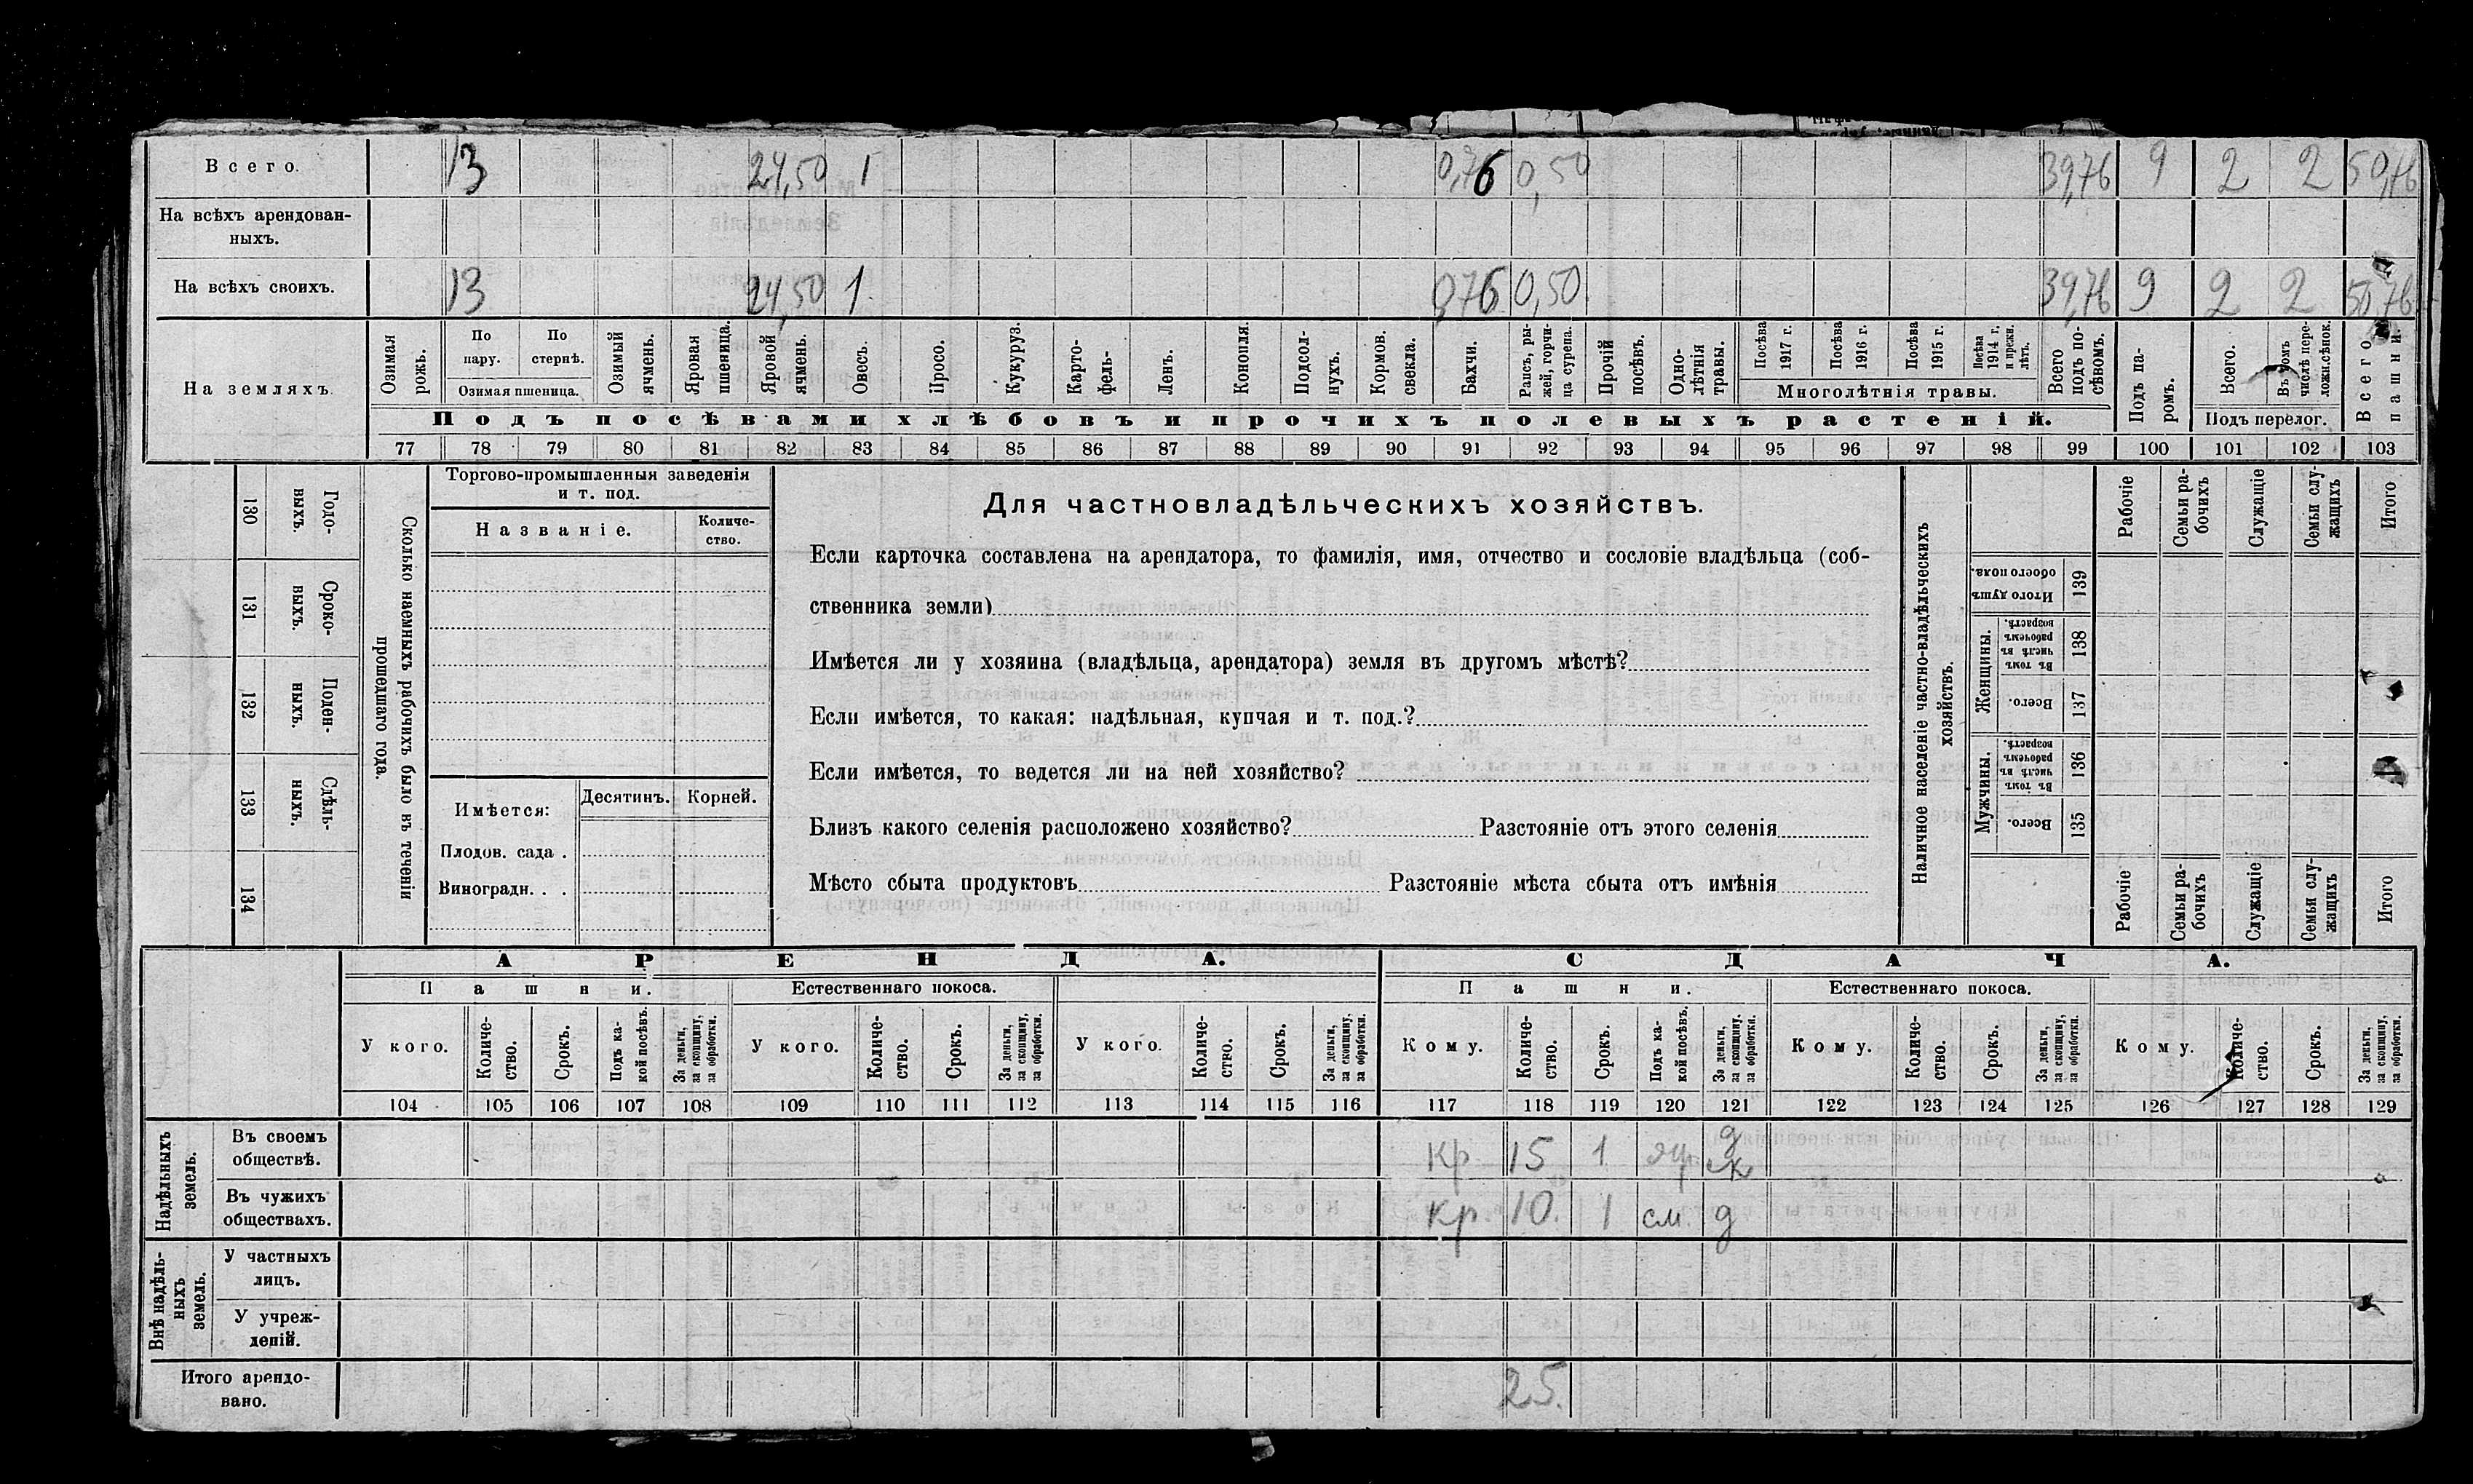 Всего. 13 24,50 1 0,76 0,50 39,76 9 2 2 50,76
На всѣхъ арендован-
ныхъ.
На всѣхъ своихъ. 13 24,50 1. 0,76 0,50 39,76 9 2 2 50,76
На земляхъ
Озимая рожь.
По пару.
По стернѣ.
Озимая пшеница.
Озимый ячмень.
Яровая пшеница.
Яровой ячмень.
Овесъ.
Просо.
Кукуруз.
Карто-
фель-
Ленъ.
Конопля.
Подсол-
нухъ.
Кормов.
свекла.
Бахчи.
Рапсъ, ры-
жей, горчи-
ца сурепа.
Прочій
посѣвъ.
Одно-
лѣтнія
травы.
Посѣва
1917 г.
Посѣва
1916 г.
Посѣва
1915 г.
Посѣва
1914 г.
и прежн.
лѣтъ.
Многолѣтнія травы.
Всего
подъ по-
сѣвомъ.
Подъ па-
ромъ.
Всего.
Въ томъ
числѣ пере-
ложн.сѣнок.
Подъ перелог.
Всего
пашни.
Подъ посѣвами хлѣбовъ и прочихъ полевыхъ растеній.
77 78 79 80 81 82 83 84 85 86 87 88 89 90 91 92 93 94 95 96 97 98 99 100 101 102 103
130 Годо-
выхъ.
131 Сроко-
выхъ.
132 Поден-
ныхъ.
133 Сдѣль-
ныхъ.
134
Сколько наемныхъ рабочихъ было въ теченіи
прошедшаго года.
Торгово-промышленныя заведенія
и т. под.
Названіе.
Количе-
ство.
Имѣется:
Десятин.
Корней.
Плодов. сада .
Виноградн. . .
Для частновладѣльческихъ хозяйствъ.
Если карточка составлена на арендатора, то фамилія, имя, отчество и сословіе владѣльца (соб-
ственника земли)
Имѣется ли у хозяина (владѣльца, арендатора) земля въ другомъ мѣстѣ?
Если имѣется, то какая: надѣльная, купчая и т. под.?
Если имѣется, то ведется ли на ней хозяйство?
Близъ какого селенія расположено хозяйство? Разстояніе отъ этого селенія
Мѣсто сбыта продуктовъ Разстояніе мѣста сбыта отъ имѣнія
Наличное населеніе частно-владѣльческихъ
хозяйствъ.
Рабочіе
Семьи ра-
бочихъ
Служащіе
Семьи слу-
жащихъ
Итого
Итого душъ
обоего пола.
139
Женщины.
Въ томъ
числѣ въ
рабочемъ
возрастѣ.
138
Всего.
137
Мужчины.
Въ томъ
числѣ въ
рабочемъ
возрастѣ.
136
Всего.
135
Рабочіе
Семьи ра-
бочихъ
Служащіе
Семьи слу-
жащихъ
Итого
АРЕНДА. СДАЧА.
Пашни. Естественнаго покоса. Пашни. Естественнаго покоса.
У кого.
Количе-
ство.
Срокъ.
Подъ ка-
кой посѣвъ.
За деньги,
за скопщину,
за обработки.
У кого.
Количе-
ство.
Срокъ.
За деньги,
за скопщину,
за обработки.
У кого.
Количе-
ство.
Срокъ.
За деньги,
за скопщину,
за обработки.
Кому.
Количе-
ство.
Срокъ.
Подъ ка-
кой посѣвъ.
За деньги,
за скопщину.
за обработки.
Кому.
Количе-
ство.
Срокъ.
За деньги,
за скопщину,
за обработки.
Кому.
Количе-
ство.
Срокъ.
За деньги,
за скопщину,
за обработки.
104 105 106 107 108 109 110 111 112 113 114 115 116 117 118 119 120 121 122 123 124 125 126 127 128 129
Надѣльныхъ
земель.
Въ своемъ
обществѣ.
кр. 15 1 д
Въ чужихъ
обществахъ.
кр. 10. 1 см. д
Внѣ надѣль-
ныхъ
земель.
У частныхъ
лицъ.
У учреж-
деній.
Итого арендо-
вано.
25.